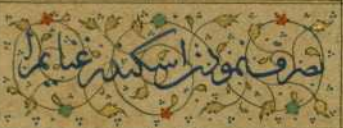 تصرف نمودن اسکندر غنایم را